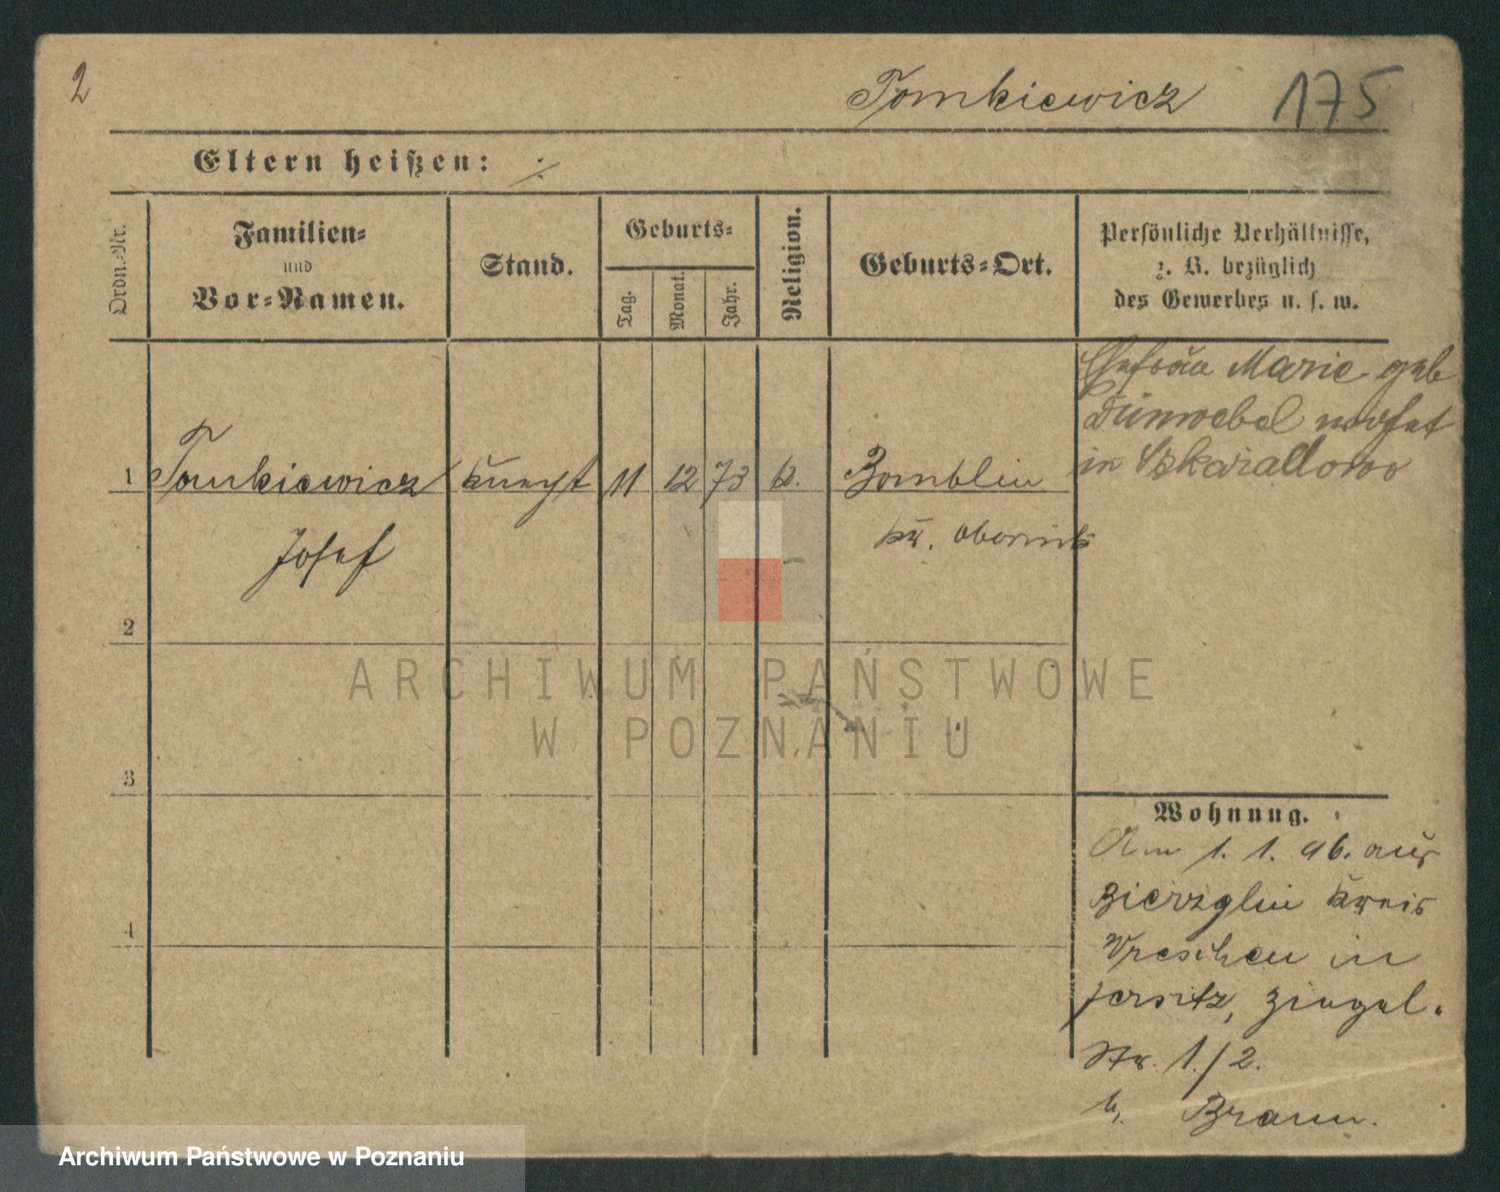 2
Tomkiewicz 175
Eltern heißen: ./.
Ordn.-Nr.
Familien-
und
Vor-Namen.
Stand.
Geburts-
Tag.
Monat.
Jahr.
Religion.
Geburts-Ort.
Persönliche Verhältnisse,
z. B. bezüglich
des Gewerbes u. s. w.
Ehefrau Marie geb
in
1 Tomkiewicz Knecht 11 12 73 k. Bomblin
Josef
Kr. Obornik
2
3
4
Wohnung.
Am 1. 1. 96. aus
Bierzglin Kreis
Wreschen in
Jersitz, Ziegel-
Str. 1./2.
b. Braun.
ARCHIWUM PAŃSTWOWE
W POZNANIU
Archiwum Państwowe w Poznaniu